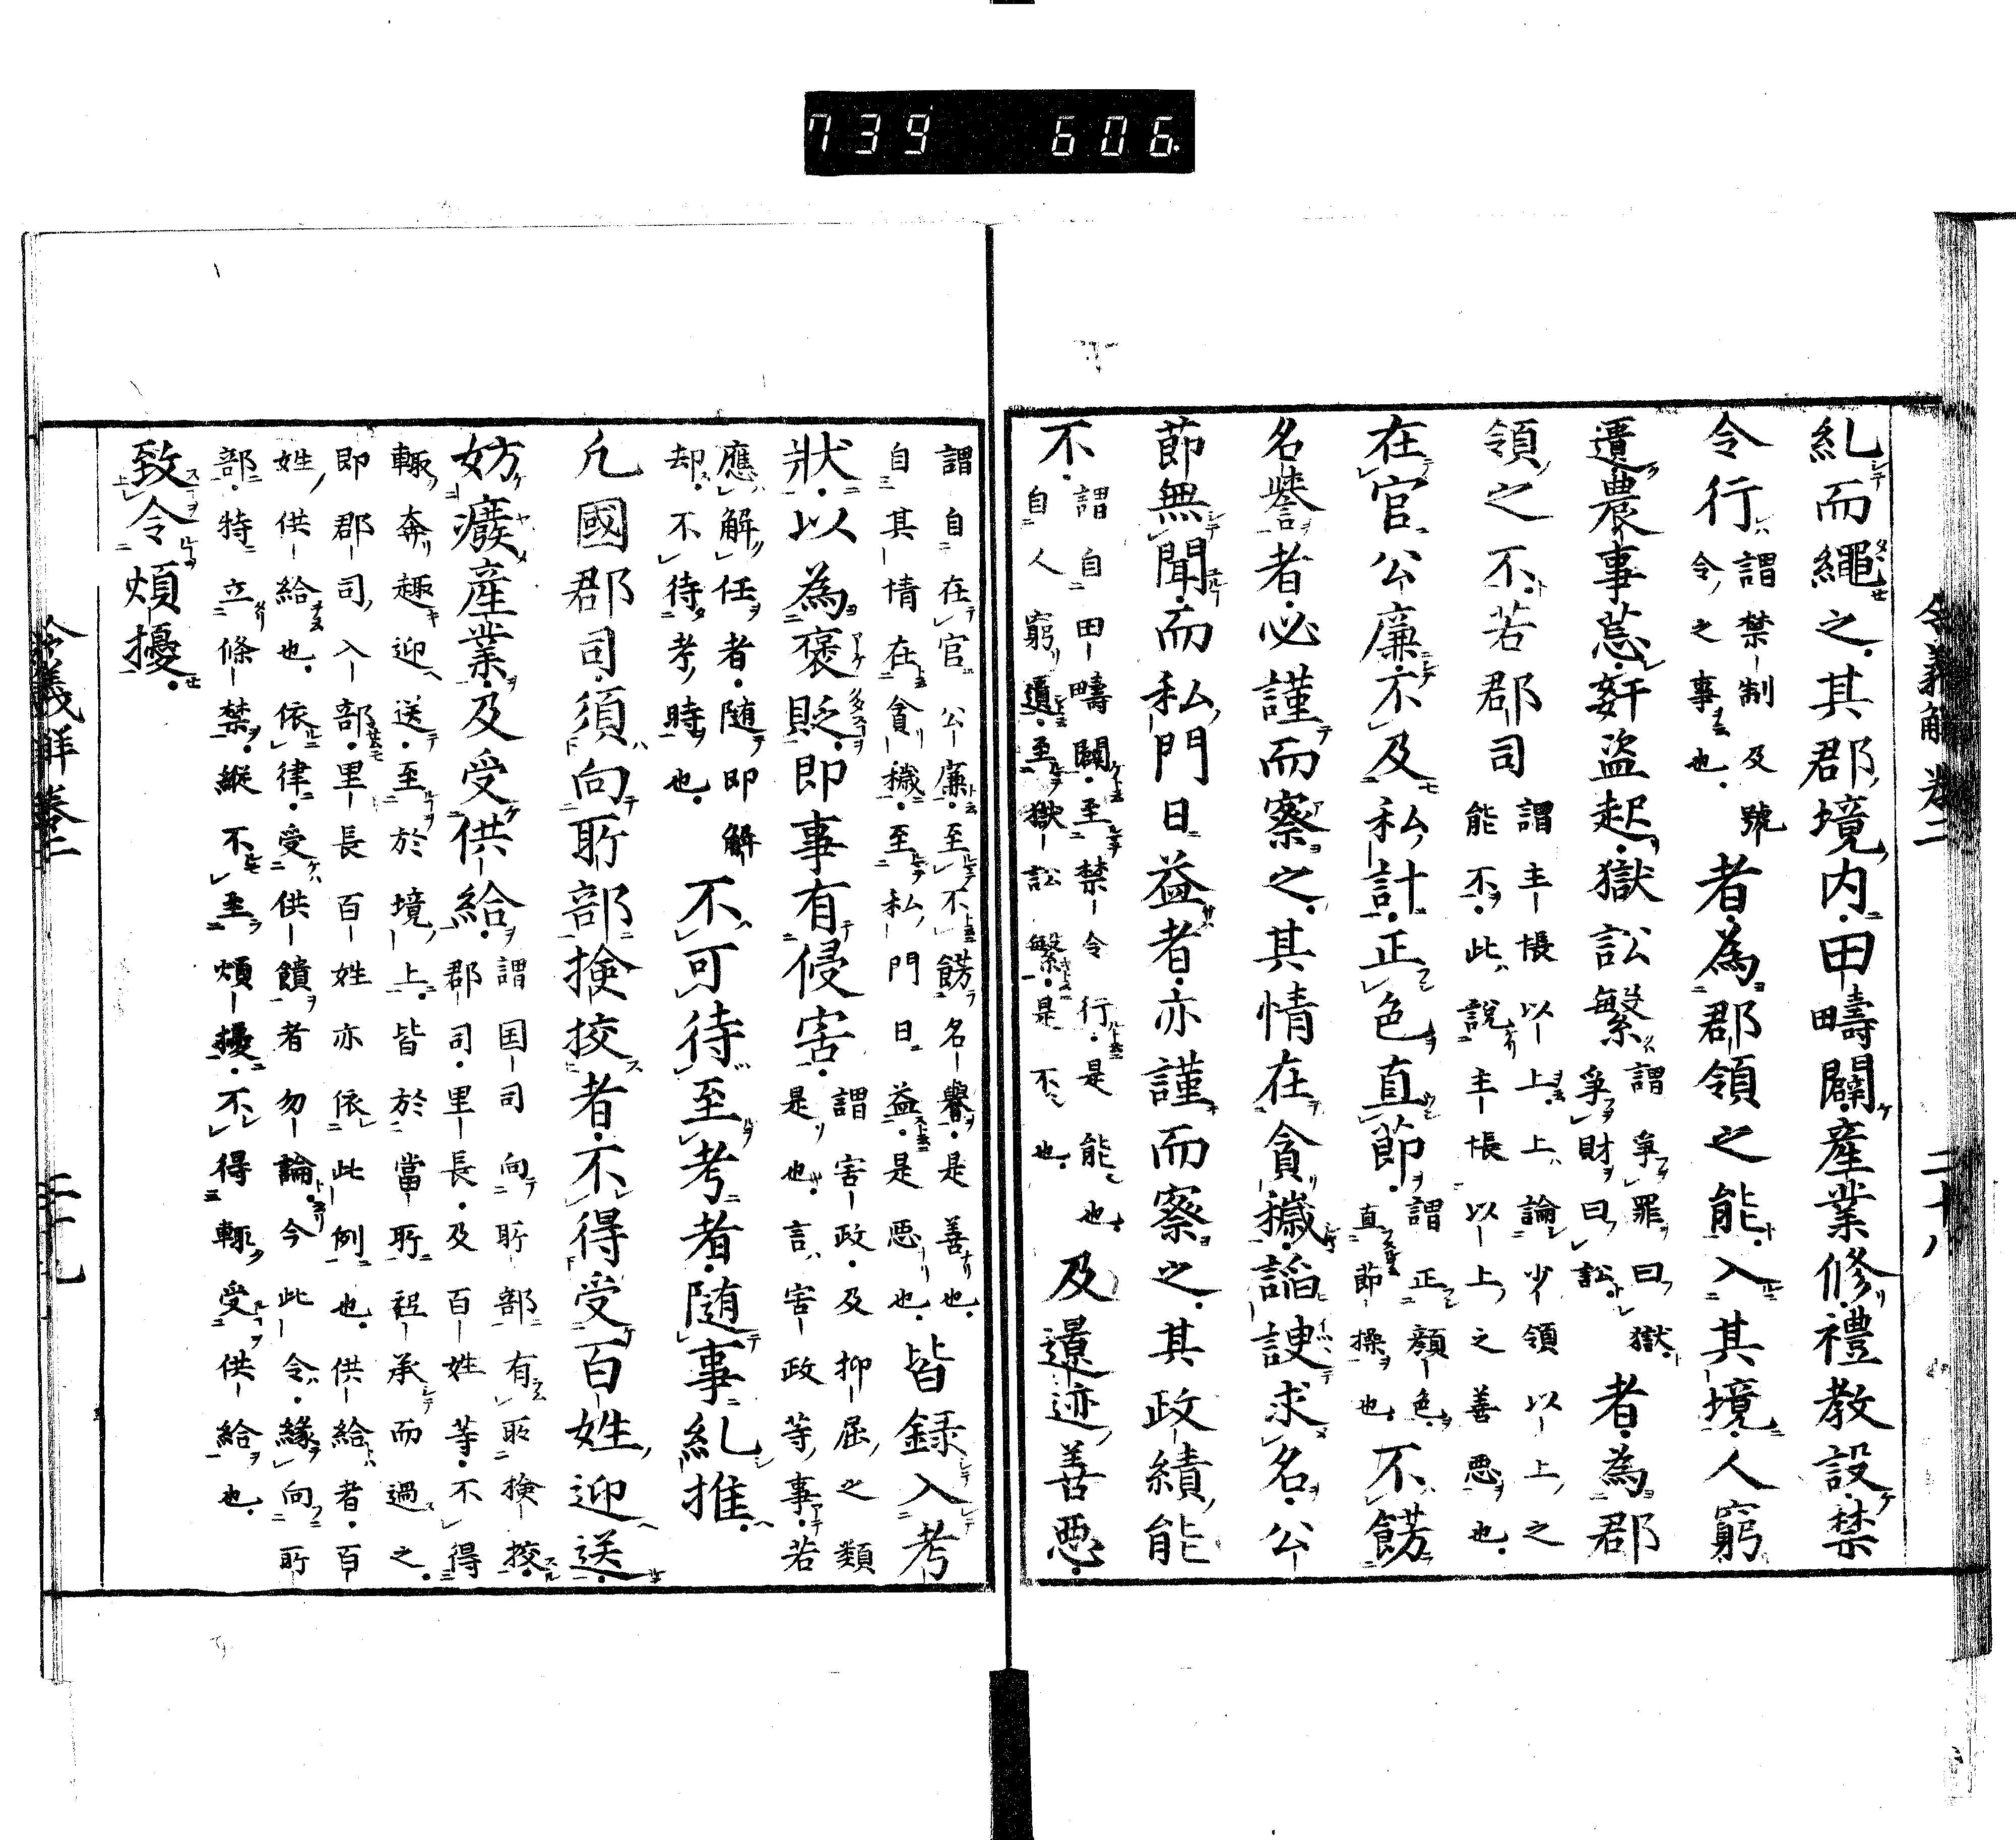 739 606
令義解 卷二 二十八
糺而繩之。其郡境内。田疇闢。產業修。禮教設。禁
令行
謂禁制及號
令之事也。
者。為郡領之能。入其境。人窮
遺。農事荒。姧盗起。獄訟繁
謂爭罪曰獄。
爭財曰訟。
者。為郡
領之不。若郡司
謂主帳以上。上論少領以上之
能不。此説主帳以上之善悪也。
在官公廉。不及私計。正色直節。
謂正顔色。
直節操也。
不餝
名譽者。必謹而察之。其情在貪穢。謟諛求名。公
節無聞。而私門日益者。亦謹而察之。其政績能
不。
謂自田疇闢。至禁令行。是能也
自人窮遺。至獄訟繁。是不也。
及景迹善悪。
謂自在官公廉。至不餝名譽。是善也。
自其情在貪穢。至私門日益。是悪也。
皆録入考
狀。以為褒貶。即事有侵害。
謂害政。及抑屈之類
是也。言害政等事。若
應解任者。随即解
却。不待考時也。
不可待至考者。随事糺推。
凡國郡司。須向所部撿挍者。不得受百姓迎送。
妨癈產業。及受供給。
謂国司向所部有所撿挍。
郡司。里長。及百姓等。不得
輙奔趣迎送。至於境上。皆於當所祗承而過之。
即郡司入部。里長百姓亦依此例也。供給者。百
姓供給也。依律。受供饋者勿論。今此令。緣向所
部。特立條禁。縱不至煩擾。不得輙受供給也。
致令煩擾。
令義解 卷二 二十九